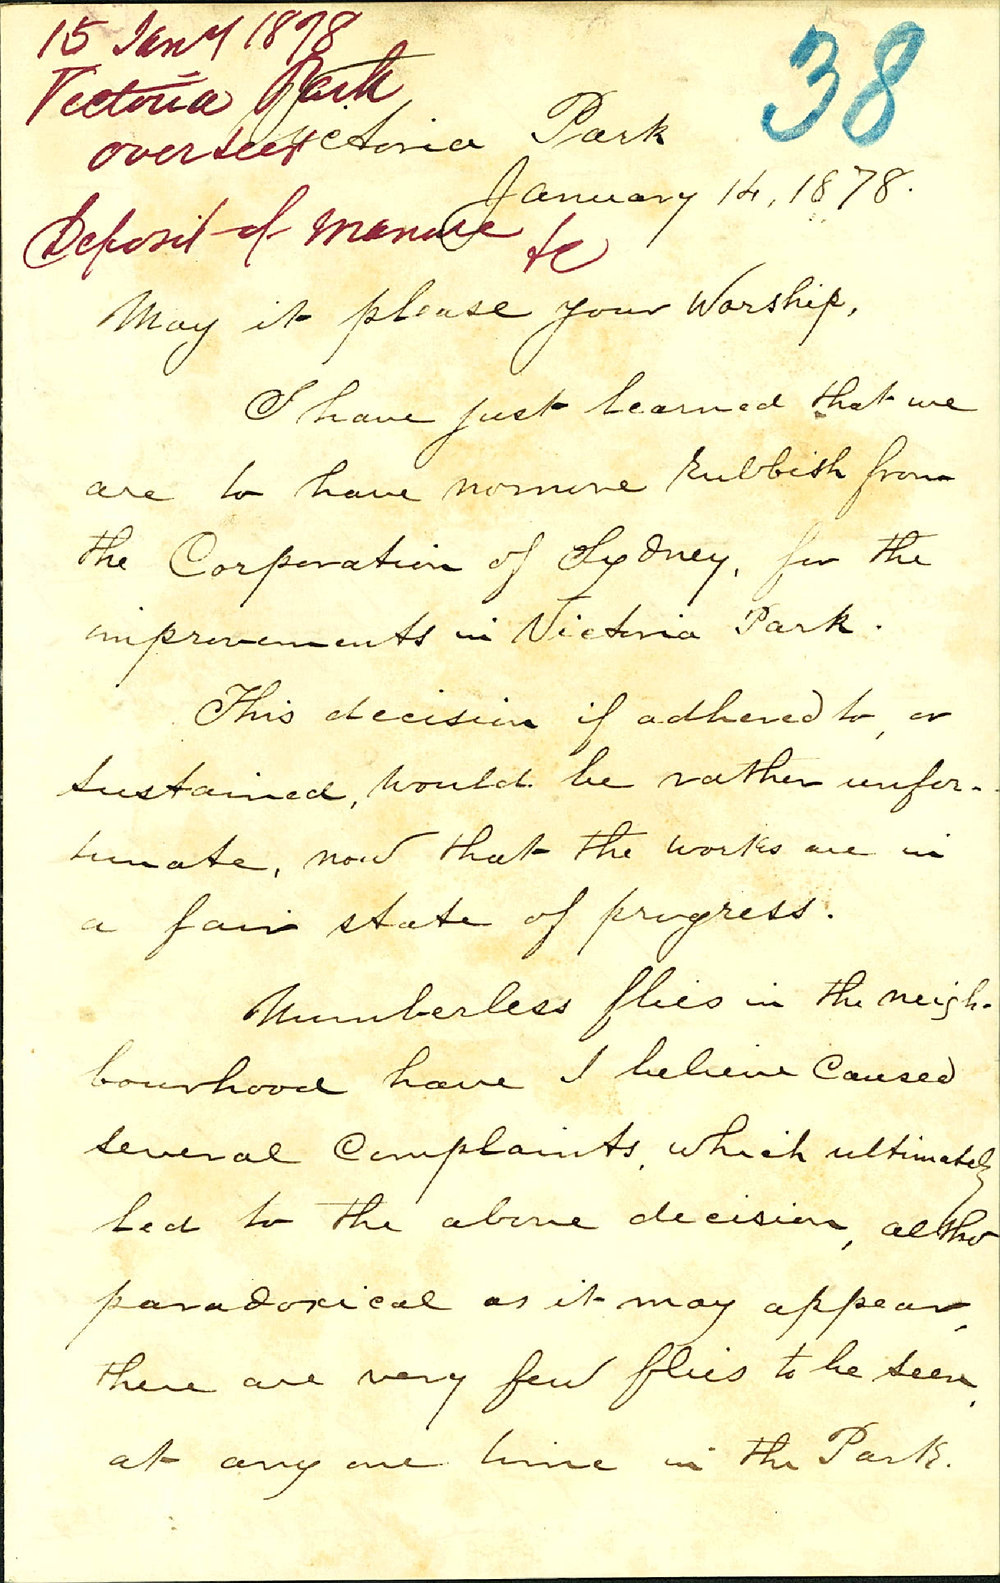 15 Jany 1878
Victoria Park
overseer
Deposit of Manure &c
38
Victoria Park
January 14, 1878.
May it please your Worship,
I have just learned that we
are to have nomore rubbish from
the Corporation of Sydney, for the
improvements in Victoria Park.
This decision if adhered to, or
sustained, would be rather unfor-
tunate, now that the works are in
a fair state of progress.
Numberless flies in the neigh-
bourhood have I believe caused
several complaints, which ultimately
led to the above decision, altho
paradoxical as it may appear,
there are very few flies to be seen,
at any one time in the Park.